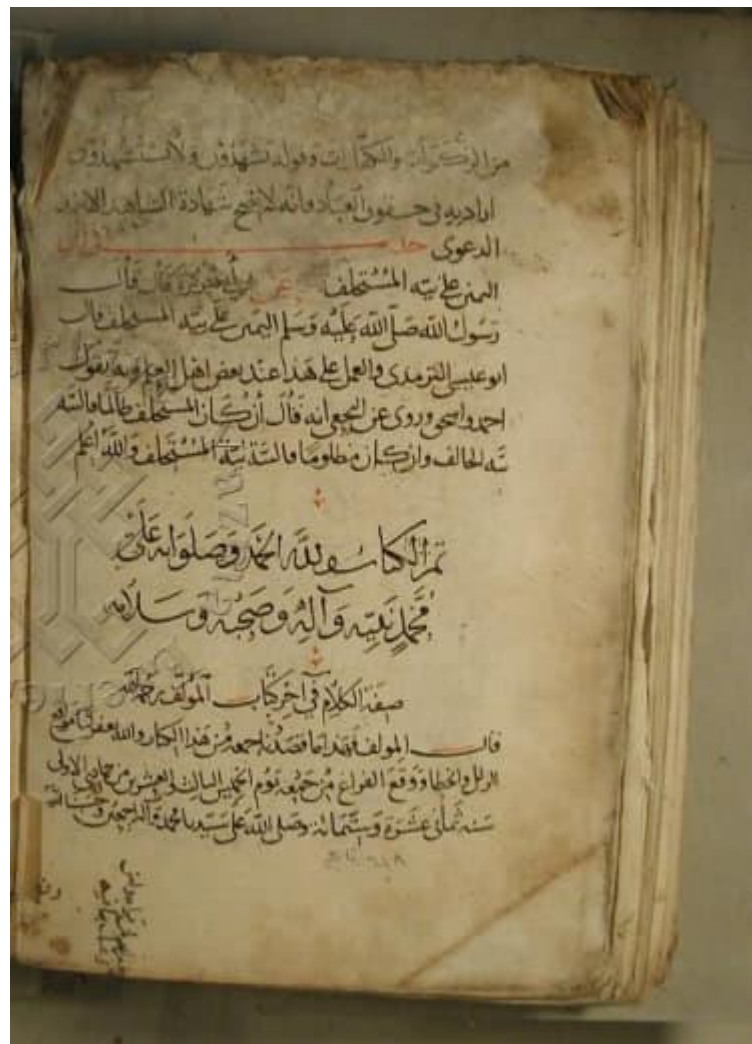 من الزكوات والكفارات وقوله يشهدون ولا يستشهدون
اراد به في حقوق العباد فانه لا يصح شهادة الشاهد الا بعد
الدعوى
اليمين على نية المستحلف عن أبي هريرة قال قال
رسول الله صلى الله عليه وسلم اليمين على نية المستحلف قال
ابو عيسى الترمذي والعمل على هذا عند بعض اهل العلم وبه يقول
احمد واسحق وروى عن النخعي انه قال ان كان المستحلف ظالما فالنية
نية الحالف وان كان مظلوما فالنية نية المستحلف والله اعلم
تم الكتاب ولله الحمد وصلواته على
محمد نبيه وآله وصحبه وسلامه
صفة الكلام في آخر كتاب المؤلف رحمه الله
قال المؤلف فهذا ما قصدنا جمعه من هذا الكتاب والله
الزلل والخطأ ووقع الفراغ من جميعه يوم الخميس الثالث والعشرين من جمادى الاولى
سنة ثماني عشرة وستمائة وصلى الله على سيدنا محمد وآله اجمعين